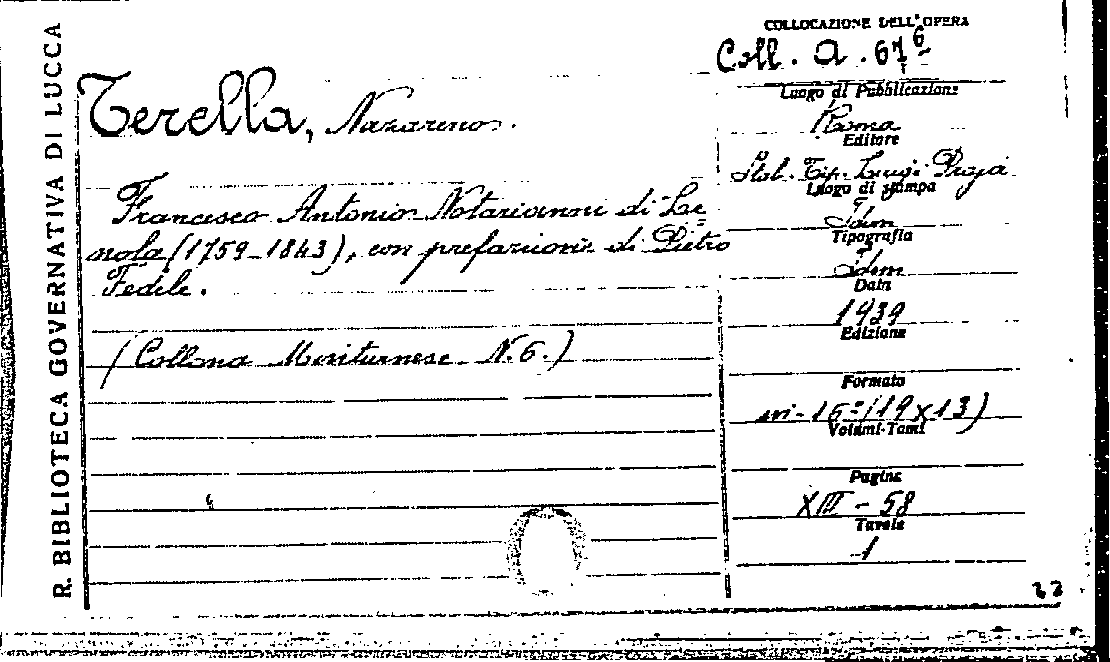 R. BIBLIOTECA GOVERNATIVA DI LUCCA
Terella, Nazareno.
Francesco Antonio Notarianni di Le-
nola (1759-1843), con prefazione di Pietro
Fedele.
(Collana Minturnese N. 6.)
COLLOCAZIONE DELL'OPERA
Coll. A. 67 6
Luogo di Pubblicazione
Roma
Editore
Stab. Tip. Luigi Proja
Luogo di stampa
Idem
Tipografia
Idem
Data
1939
Edizione
Formato
in-16° (19x13)
Volumi-Tomi
Pagine
XIII - 58
Tavole
1